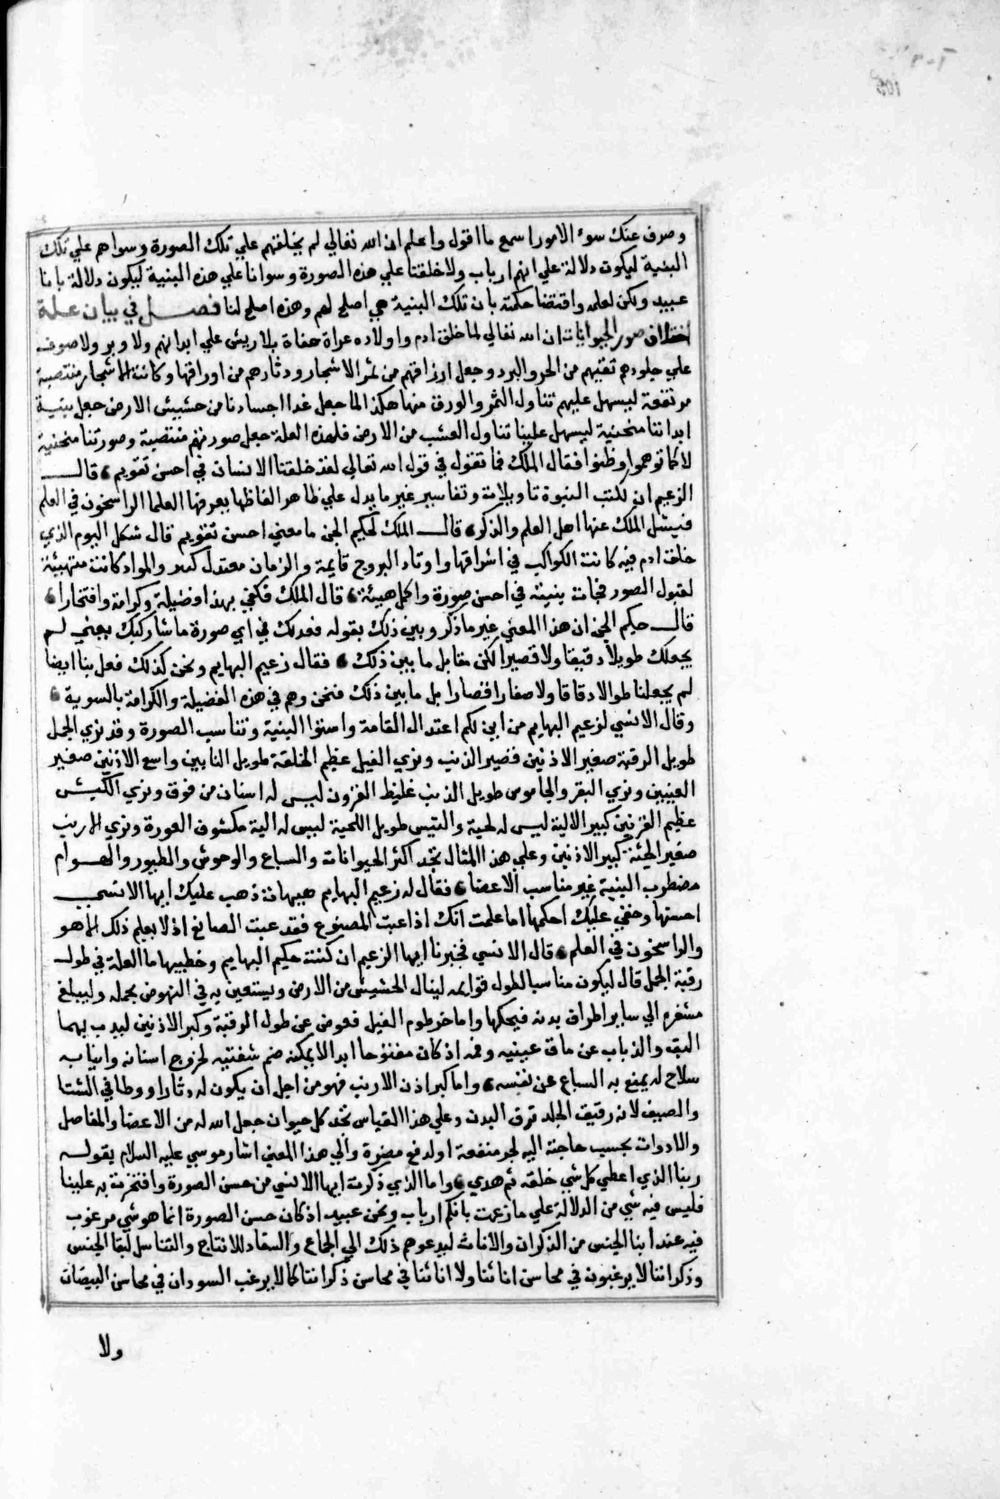 وصرف عنك سوء الامور اسمع ما اقول واعلم ان الله تعالي لم يخلقهم علي تلك الصورة وسواهم علي تلك
البنية ليكون دلالة علي انهم ارباب ولا خلقنا علي هذه الصورة وسوانا علي هذه البنية ليكون دلالة باننا
عبيد ولكن لعلمه واقتضا حكمته بان تلك البنية هي اصلح لهم وهذه اصلح لنا فصل في بيان علة
اختلاف صور الحيوانات ان الله تعالي لما خلق ادم واولاده عراة حفاة بلا ريش علي ابدانهم ولا وبر ولا صوف
علي جلودهم تقيهم من الحر والبرد وجعل ارزاقهم من ثمر الاشجار ودثارهم من اوراقها وكانت الاشجار منتصبة
مرتفعة ليسهل عليهم تناول الثمر والورق منها هكذا لما جعل غدا اجسادنا من حشيش الارض جعل بنية
ابداننا منحنية ليسهل علينا تناول العشب من الارض فلهذه العلة جعل صورتهم منتصبة وصورتنا منحنية
لا كما توهموا وظنوا فقال الملك فما تقول في قول الله تعالي لقد خلقنا الانسان في احسن تقويم قال
الزعيم ان لكتب النبوة تاويلات وتفاسير غير ما يدل علي ظاهر الفاظها يعرفها العلما الراسخون في العلم
فيسئل الملك عنها اهل العلم والذكر قال الملك لحكيم الجن ما معني احسن تقويم قال شكل اليوم الذي
خلق ادم فيه كانت الكواكب في اشراقها واوتاد البروج قايمة والزمان معتدل والمواد كانت متهيئة
لقبول الصور فجات بنيته في احسن صورة واكمل هيئة قال الملك فكفي بهذا فضيلة وكرامة وافتخارا
قال حكيم الجن ان هذا المعني غير ما ذكر وبين ذلك بقوله فعدلك في اي صورة ما شا ركبك يعني لم
يجعلك طويلا دقيقا ولا قصيرا لكن مقابل ما بين ذلك فقال زعيم البهايم ونحن كذلك فعل بنا ايضا
لم يجعلنا طوالا دقاقا ولا صغارا قصارا بل ما بين ذلك فنحن وهم في هذه الفضيلة والكرامة بالسوية
وقال الانسي لزعيم البهايم من اين لكم اعتدال القامة واستوا البنية وتناسب الصورة وقد نري الجمل
طويل الرقبة صغير الاذنين قصير الذنب ونري الفيل عظيم الخلقة طويل النابين واسع الاذنين صغير
العينين ونري البقر والجاموس طويل الذنب غليظ القرون ليس له اسنان من فوق ونري الكبش
عظيم القرنين كبير الالية ليس له لحية والتيس طويل اللحية ليس له الية مكشوف العورة ونري الارنب
صغير الجثة كبير الاذنين وعلي هذا المثال تجد اكثر الحيوانات والسباع والوحوش والطيور والهوام
مضطرب البنية غير مناسب الاعضا فقال له زعيم البهايم هيهات ذهب عليك ايها الانسي
احسنها وخفي عليك احكمها اما علمت انك اذا عبت المصنوع فقد عبت الصانع اذ لا يعلم ذلك الا هو
والراسخون في العلم قال الانسي فخبرنا ايها الزعيم ان كنت حكيم البهايم وخطيبها ما العلة في طول
رقبة الجمل قال ليكون مناسبا لطول قوايمه لينال الحشيش من الارض ويستعين به في النهوض بحمله وليبلغ
مشفره الي ساير اطراف بدنه فيحكها واما خرطوم الفيل فعوض عن طول الرقبة وكبر الاذنين ليذب بهما
البق والذباب عن ماق عينيه وفمه اذ كان مفتوحا ابدا لا يمكنه ضم شفتيه لخروج اسنانه وانيابه
سلاح له يمنع به السباع عن نفسه واما كبر اذن الارنب فهو من اجل ان يكون له دثارا ووطا في الشتا
والصيف لانه رقيق الجلد ترف البدن وعلي هذا القياس تجد كل حيوان جعل الله له من الاعضا والمفاصل
والادوات بحسب حاجته اليه لجر منفعة او لدفع مضرة والي هذا المعني اشار موسي عليه السلام بقوله
ربنا الذي اعطي كل شي خلقه ثم هدي واما الذي ذكرت ايها الانسي من حسن الصورة وافتخرت به علينا
فليس فيه شي من الدلالة علي ما زعمت بانكم ارباب ونحن عبيد اذ كان حسن الصورة انما هو شي مرغوب
فيه عند ابنا الجنس من الذكران والاناث ليدعوهم ذلك الي الجماع والسفاد للانتاج والتناسل لبقا الجنس
وذكراننا لا يرغبون في محاسن اناثنا ولا اناثنا في محاسن ذكراننا كما لا يرغب السودان في محاسن البيضان
ولا